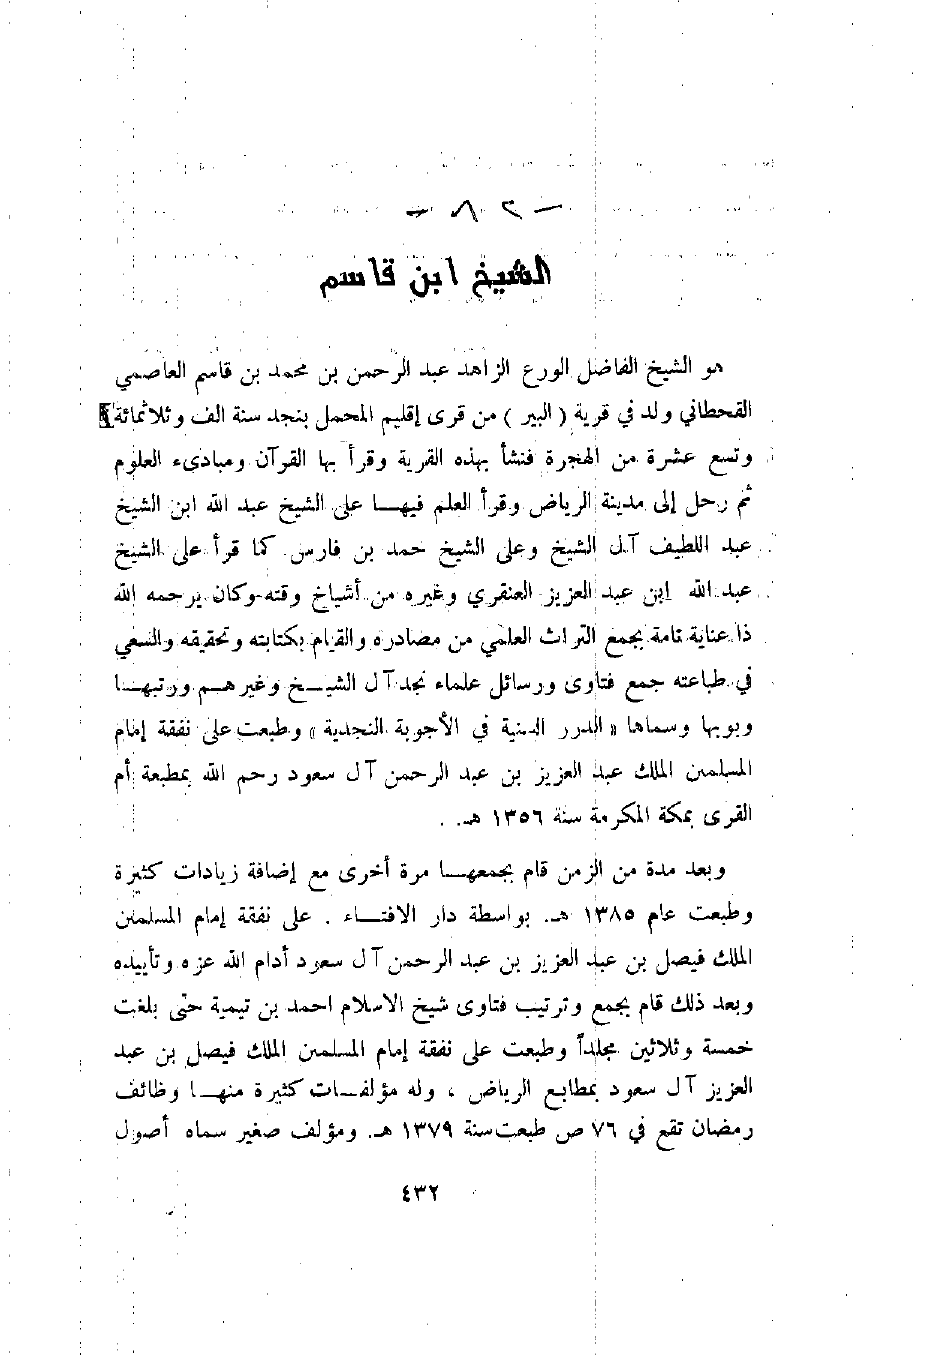 - ٨٢ -
الشيخ ابن قاسم
هو الشيخ الفاضل الورع الزاهد عبد الرحمن بن محمد بن قاسم العاصمي
القحطاني ولد في قرية ( البير ) من قرى إقليم المحمل بنجد سنة الف وثلاثمائة
وتسع عشرة من الهجرة فنشأ بهذه القرية وقرأ بها القرآن ومبادىء العلوم
ثم رحل إلى مدينة الرياض وقرأ العلم فيهـا على الشيخ عبد الله ابن الشيخ
عبد اللطيف آل الشيخ وعلى الشيخ حمد بن فارس. كما قرأ على الشيخ
عبد الله ابن عبد العزيز العنقري وغيره من أشياخ وقته وكان يرحمه الله
ذا عناية تامة بجمع التراث العلمي من مصادره والقيام بكتابته وتحقيقه والسعي
في طباعته جمع فتاوى ورسائل علماء نجد آل الشيـخ وغيرهـم ورتبهـا
وبوبها وسماها « الدرر السنية في الأجوبة النجدية » وطبعت على نفقة إمام
المسلمين الملك عبد العزيز بن عبد الرحمن آل سعود رحم الله بمطبعة أم
القرى بمكة المكرمة سنة ١٣٥٦ هـ .
وبعد مدة من الزمن قام بجمعهـا مرة أخرى مع إضافة زيادات كثيرة
وطبعت عام ١٣٨٥ هـ. بواسطة دار الافتـاء . على نفقة إمام المسلمين
الملك فيصل بن عبد العزيز بن عبد الرحمن آل سعود أدام الله عزه وتأييده
وبعد ذلك قام بجمع وترتيب فتاوى شيخ الاسلام احمد بن تيمية حتى بلغت
خمسة وثلاثين مجلداً وطبعت على نفقة إمام المسلمين الملك فيصل بن عبد
العزيز آل سعود بمطابع الرياض ، وله مؤلفـات كثيرة منهـا وظائف
رمضان تقع في ٧٦ ص طبعت سنة ١٣٧٩ هـ. ومؤلف صغير سماه أصول
٤٣٢